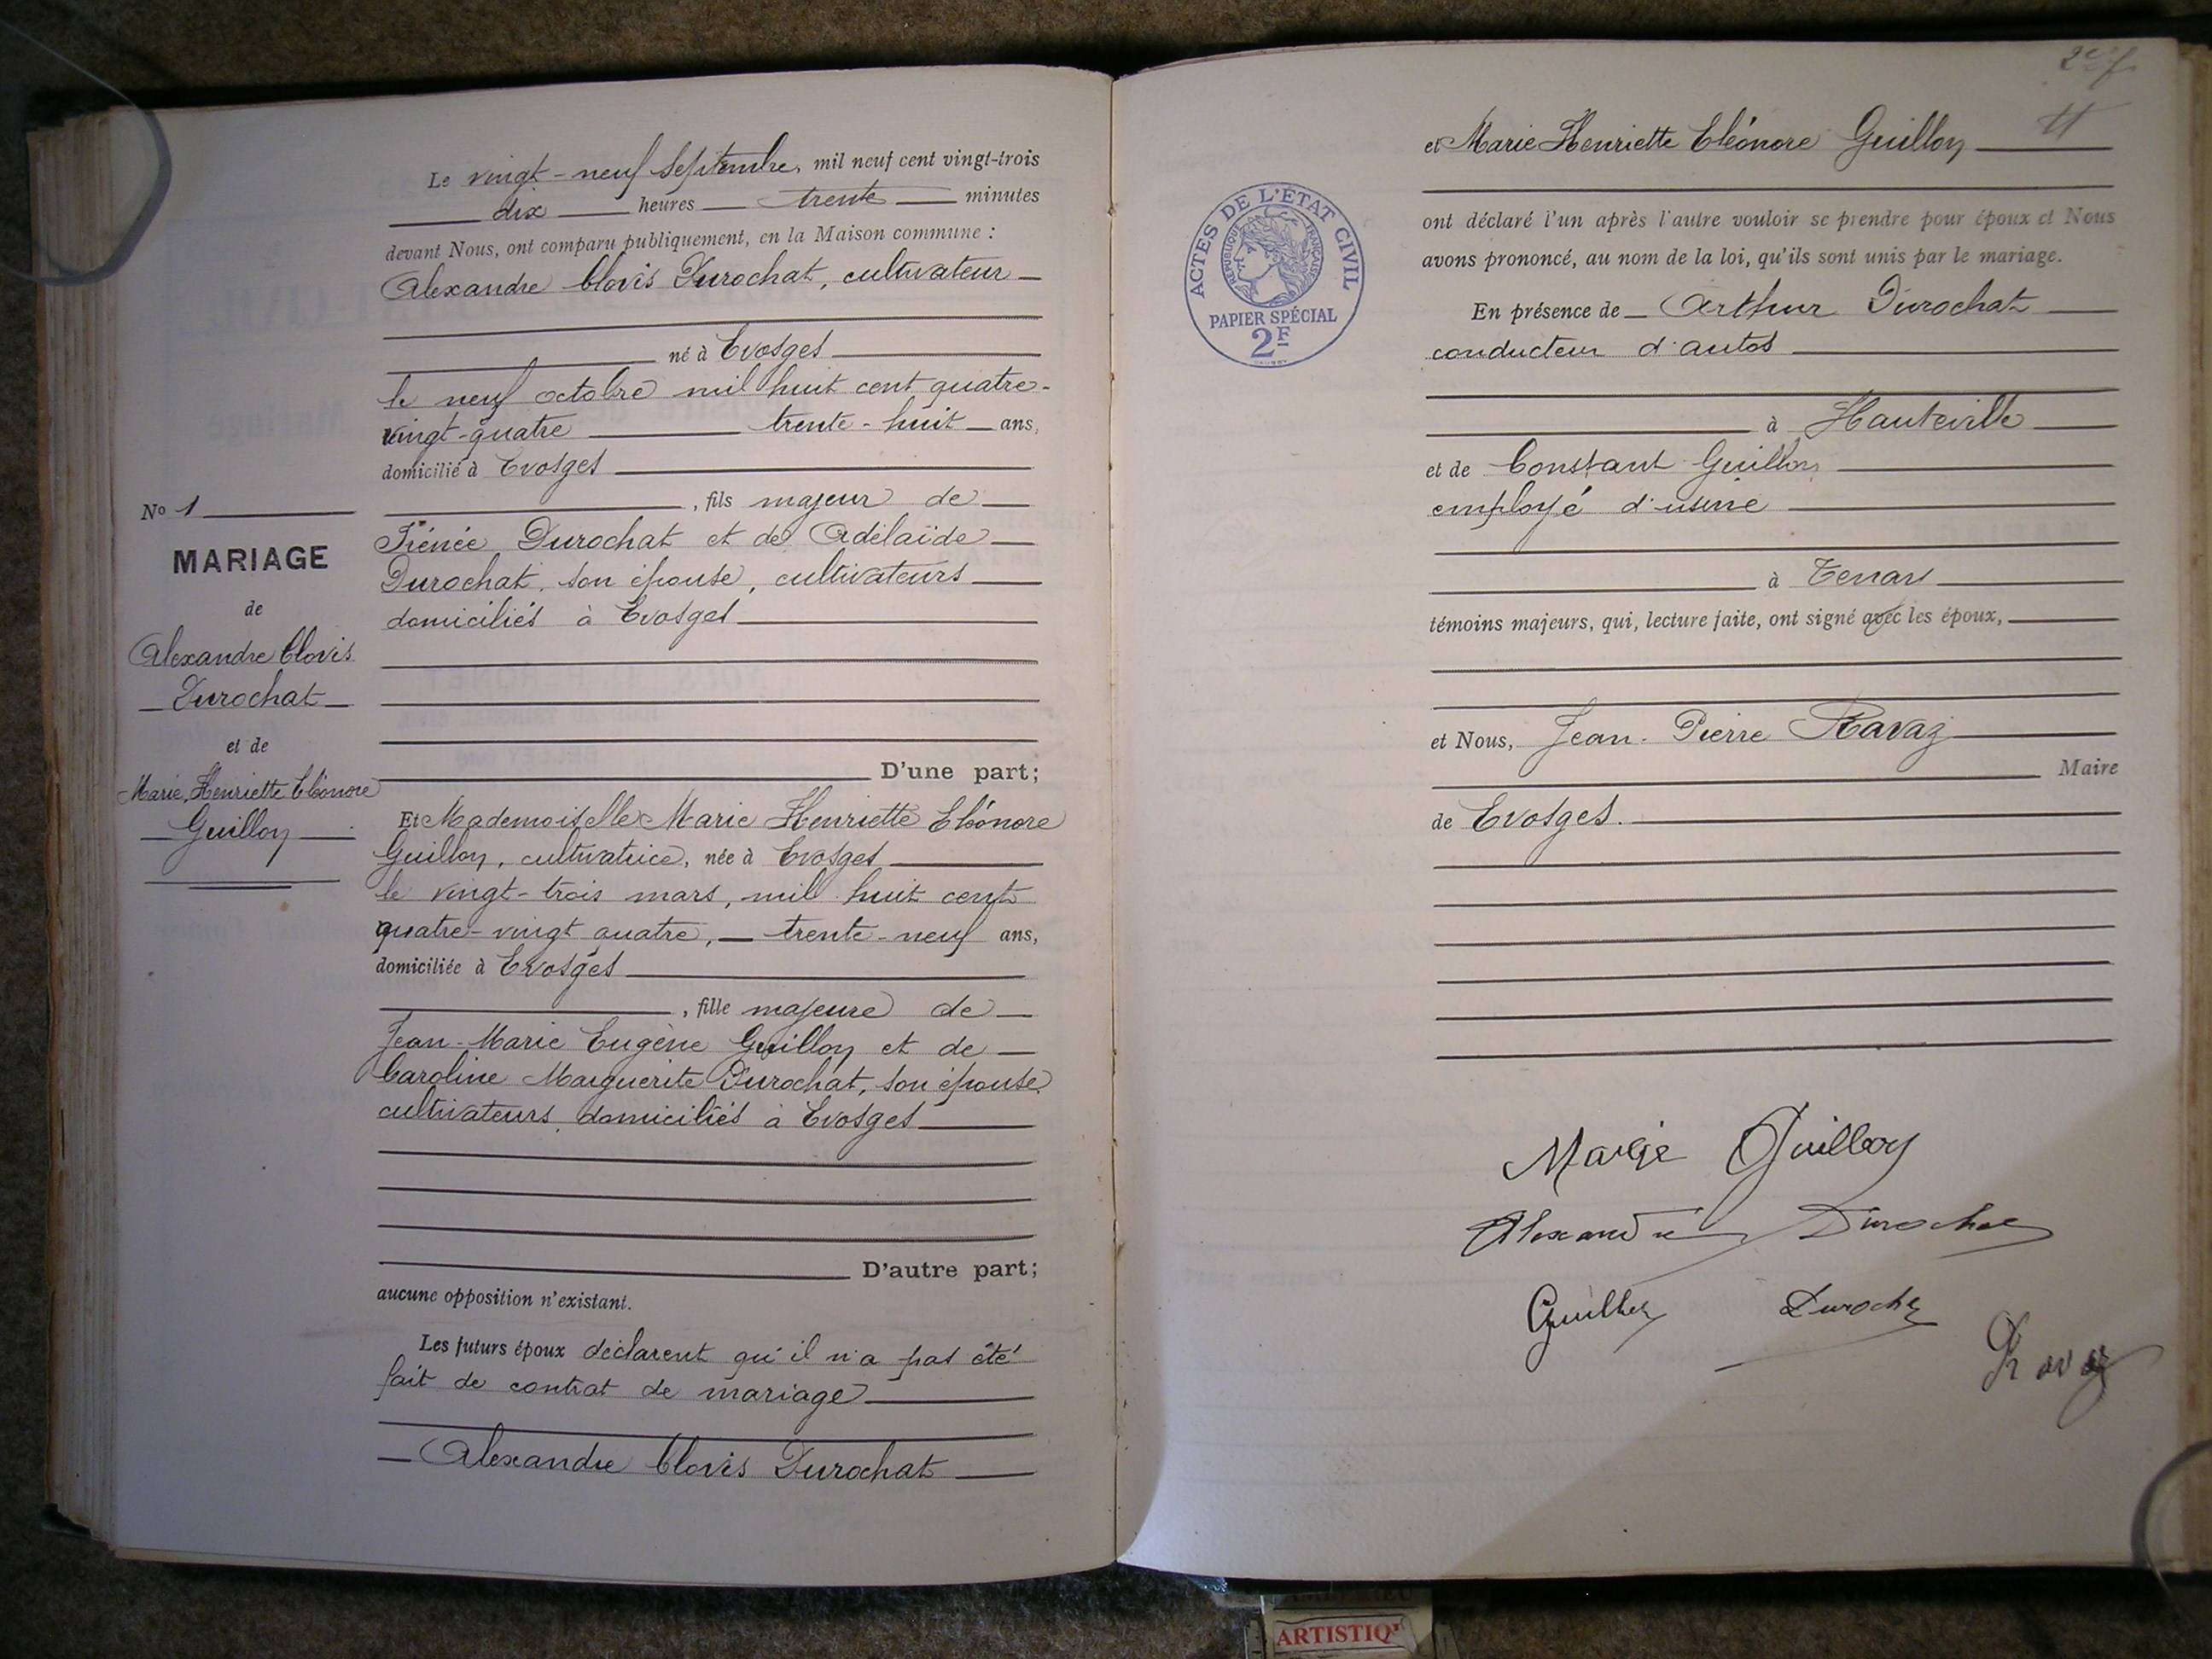 Le vingt-neuf Septembre, mil neuf cent vingt-trois
dix heures trente minutes
devant Nous, ont comparu publiquement, en la Maison commune :
Alexandre Clovis Durochat, cultivateur
né à Evosges
le neuf octobre mil huit cent quatre-
vingt-quatre trente-huit ans,
domicilié à Evosges
, fils majeur de
Durochat et de Adélaïde
Durochat, son épouse, cultivateurs
domiciliés à Evosges
D'une part;
Et Mademoiselle Marie Henriette Eléonore
Guillon, cultivatrice, née à Evosges
le vingt-trois mars, mil huit cent
quatre-vingt quatre, trente-neuf ans,
domiciliée à Evosges
, fille majeure de
Jean-Marie Eugène Guillon et de
Caroline Marguerite Durochat, son épouse
cultivateurs, domiciliés à Evosges
D'autre part;
aucune opposition n'existant.
Les futurs époux déclarent qu'il n'a pas été
fait de contrat de mariage
Alexandre Clovis Durochat
No 1
MARIAGE
de
Alexandre Clovis
Durochat
et de
Marie, Henriette Eléonore
Guillon
11
et Marie Henriette Eléonore Guillon
ont déclaré l'un après l'autre vouloir se prendre pour époux et Nous
avons prononcé, au nom de la loi, qu'ils sont unis par le mariage.
En présence de Arthur Durochat
conducteur d'autos
à Hauteville
et de Constant Guillon
employé d'usine
à Tenay
témoins majeurs, qui, lecture faite, ont signé avec les époux,
et Nous, Jean-Pierre Ravaz
Maire
de Evosges.
ACTES DE L'ÉTAT CIVIL
RÉPUBLIQUE FRANÇAISE
PAPIER SPÉCIAL
2F
Marie Guillon
Alexandre Durochat
Guillon Durochat
Ravaz
ARTISTIQ